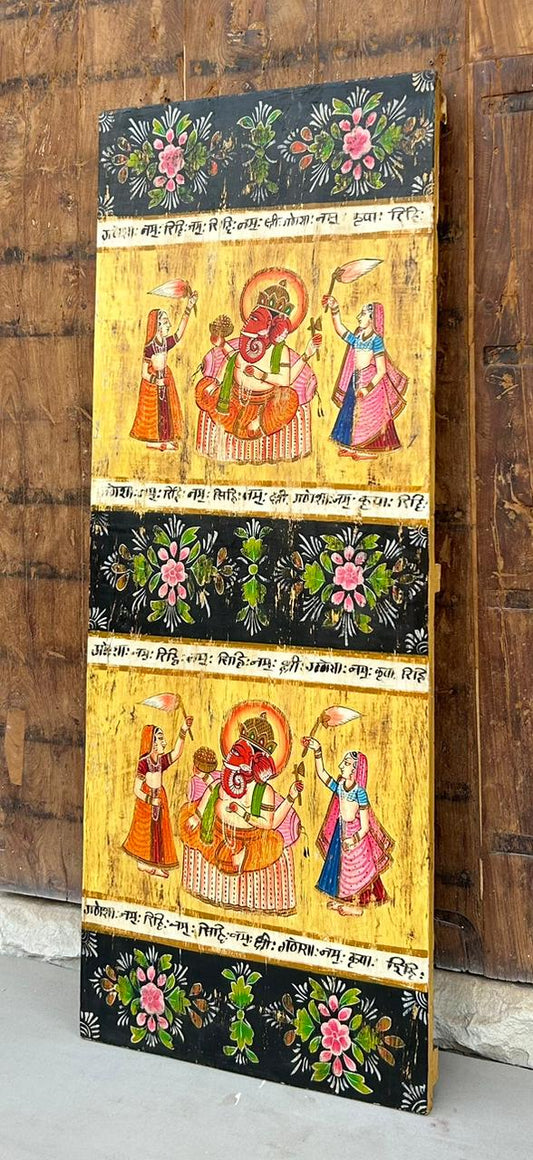 गणेशा: नमृ: रिद्दि: नमृ: सिद्दि: नमृ: श्री: गणेशा: नमृ: कृपा: रिद्दि:
गणेशा: नमृ: रिद्दि: नमृ: सिद्दि: नमृ: श्री: गणेशा: नमृ: कृपा: रिद्दि:
गणेशा: नमृ: रिद्दि: नमृ: सिद्दि: नमृ: श्री: गणेशा: नमृ: कृपा रिद्दि
गणेशा: नमृ: रिद्दि: नमृ: सिद्दि: नमृ: श्री: गणेशा: नमृ: कृपा: रिद्दि: